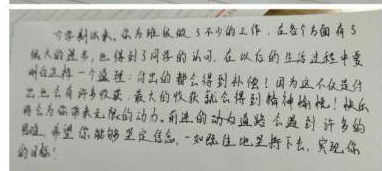 个学期以来，你为班级做了不少的工作，在各个方面有了
很大的进步，也得到了同学的认可，在以后的生活过程中要
明白这样一个道理：付出的都会得到补偿！因为这不仅是付
出也会有许多收获，最大的收获就会得到精神愉悦！快乐
将会为你带来无限的动力。前进的动力道路会遇到许多的
困难，希望你能够坚定信念，一如既往地坚持下去，实现你
的目标！